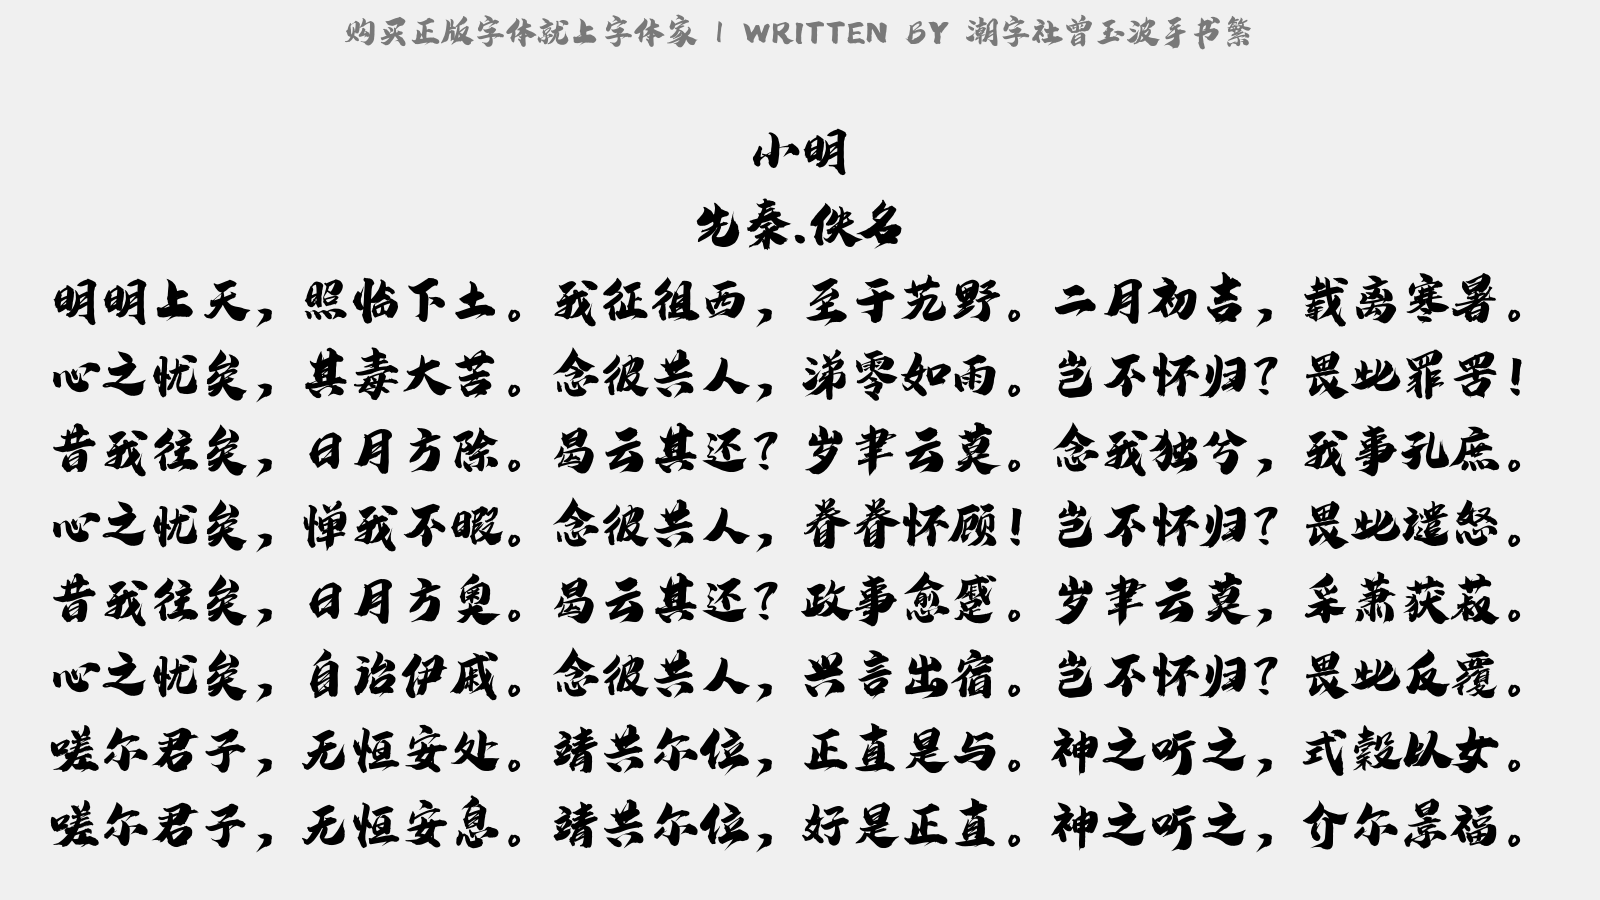 购买正版字体就上字体家 | WRITTEN BY 潮字社曾玉波手书繁
小明
先秦.佚名
明明上天，照临下土。我征徂西，至于艽野。二月初吉，载离寒暑。
心之忧矣，其毒大苦。念彼共人，涕零如雨。岂不怀归？畏此罪罟！
昔我往矣，日月方除。曷云其还？岁聿云莫。念我独兮，我事孔庶。
心之忧矣，惮我不暇。念彼共人，眷眷怀顾！岂不怀归？畏此谴怒。
昔我往矣，日月方奥。曷云其还？政事愈蹙。岁聿云莫，采萧获菽。
心之忧矣，自诒伊戚。念彼共人，兴言出宿。岂不怀归？畏此反覆。
嗟尔君子，无恒安处。靖共尔位，正直是与。神之听之，式穀以女。
嗟尔君子，无恒安息。靖共尔位，好是正直。神之听之，介尔景福。